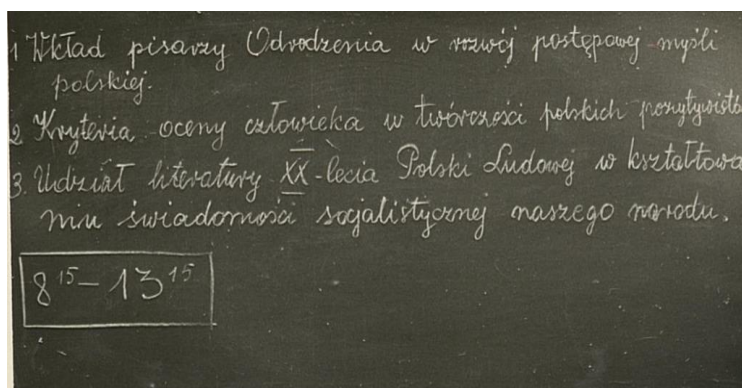 1 Wkład pisarzy Odrodzenia w rozwój postępowej myśli
polskiej.
2. Kryteria oceny człowieka w twórczości polskich pozytywistó
3. Udział literatury XX-lecia Polski Ludowej w kształtowa
niu świadomości socjalistycznej naszego narodu.
8 15 - 13 15